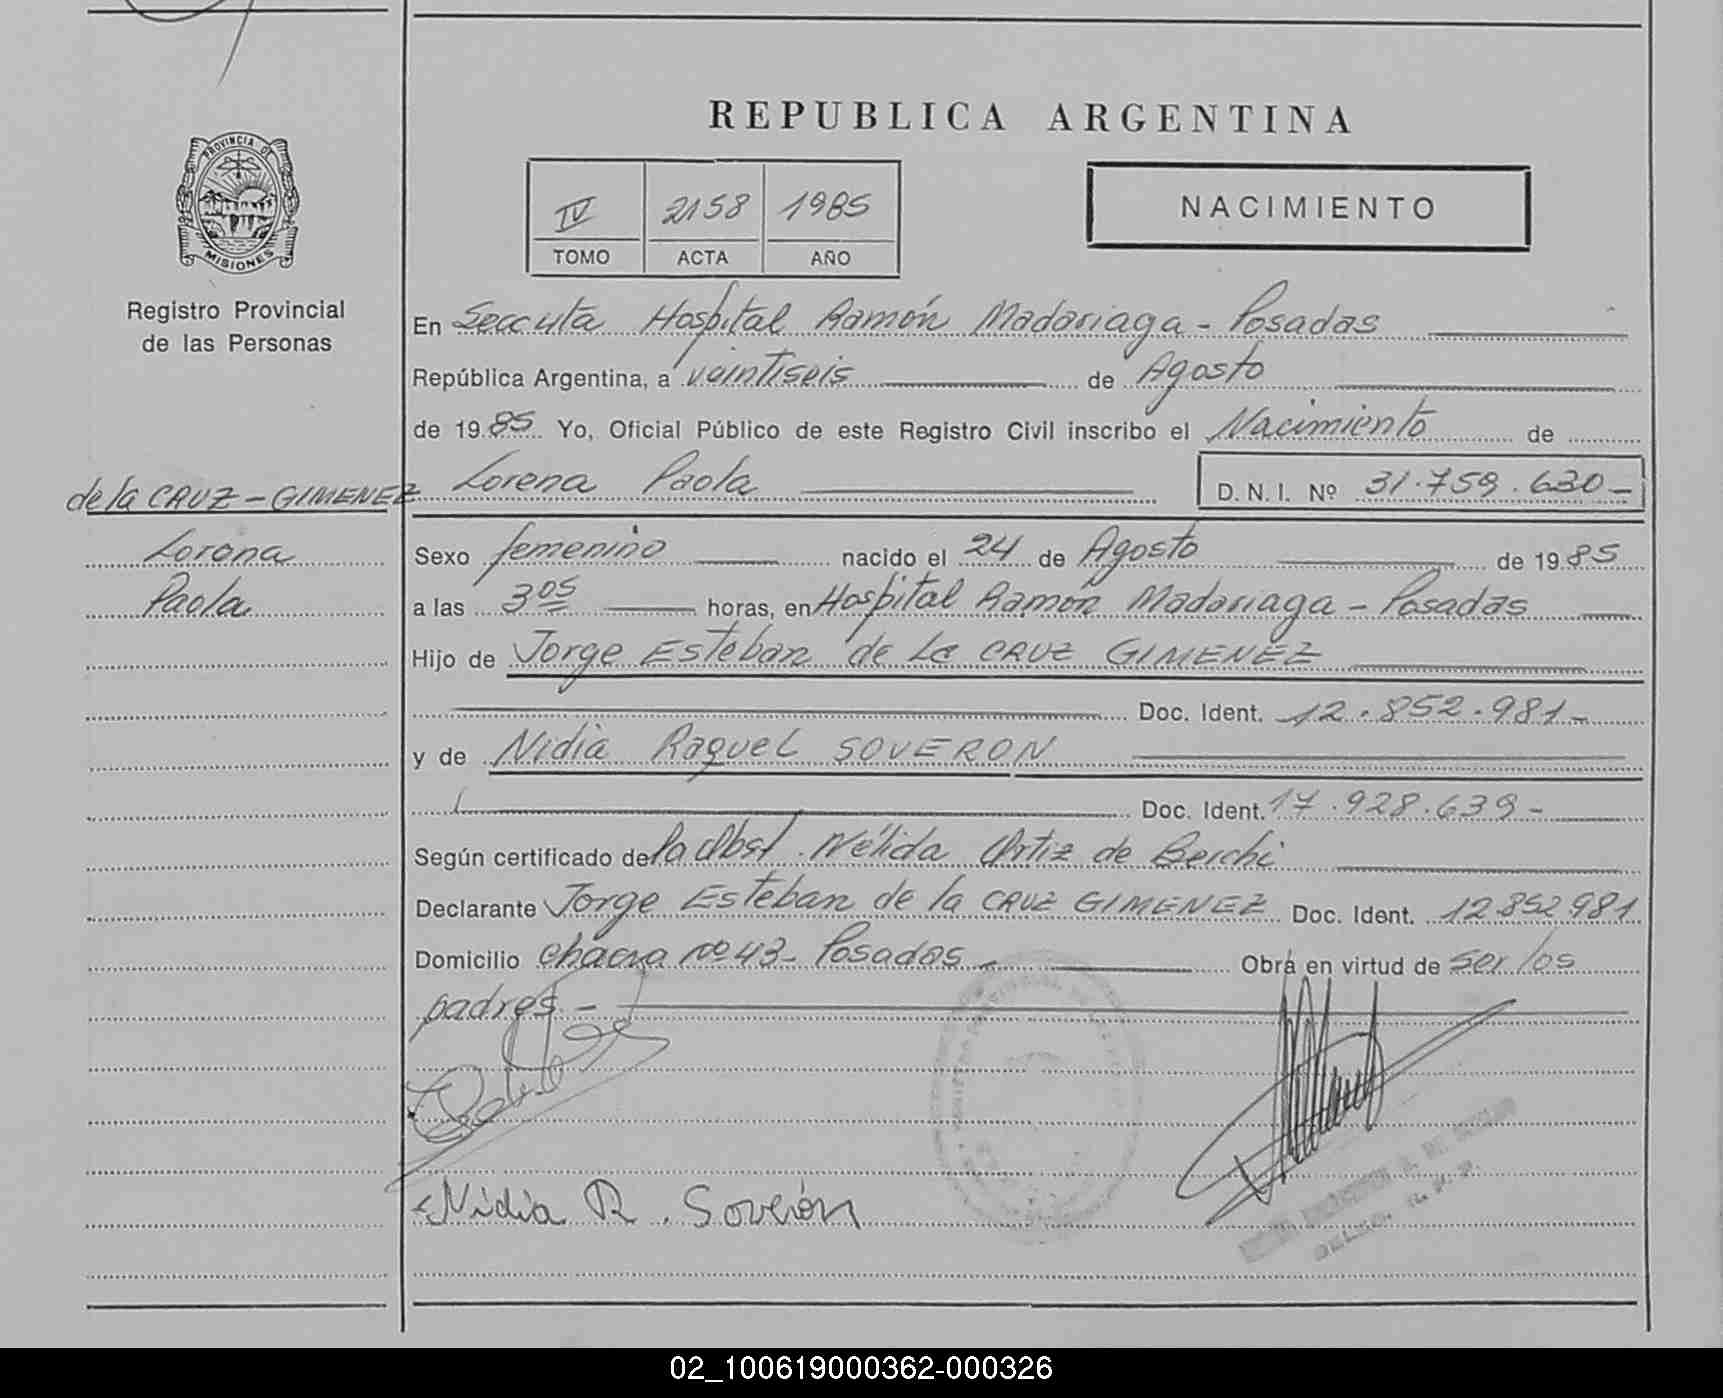 REPUBLICA ARGENTINA
PROVINCIA DE
MISIONES
Registro Provincial
de las Personas
IV 2158 1985
TOMO ACTA AÑO
NACIMIENTO
En Seccuta Hospital Ramón Madariaga - Posadas
República Argentina, a veintiseis de Agosto
de 1985 Yo, Oficial Público de este Registro Civil inscribo el Nacimiento de
Lorena Paola D. N. I. Nº 31.759.630-
de la CRUZ - GIMENEZ
Lorena
Paola
Sexo femenino nacido el 24 de Agosto de 1985
a las 3 05 horas, en Hospital Ramón Madariaga - Posadas
Hijo de Jorge Esteban de La CRUZ GIMENEZ
Doc. Ident. 12.852.981-
y de Nidia Raquel SOVERON
Doc. Ident. 17.928.639-
Según certificado de la Obst. Nélida Ortiz de Berchi
Declarante Jorge Esteban de la CRUZ GIMENEZ Doc. Ident. 12.852.981
Domicilio chacra nº 43- Posadas Obra en virtud de ser los
padres -
Nidia R. Soverón
02_100619000362-000326